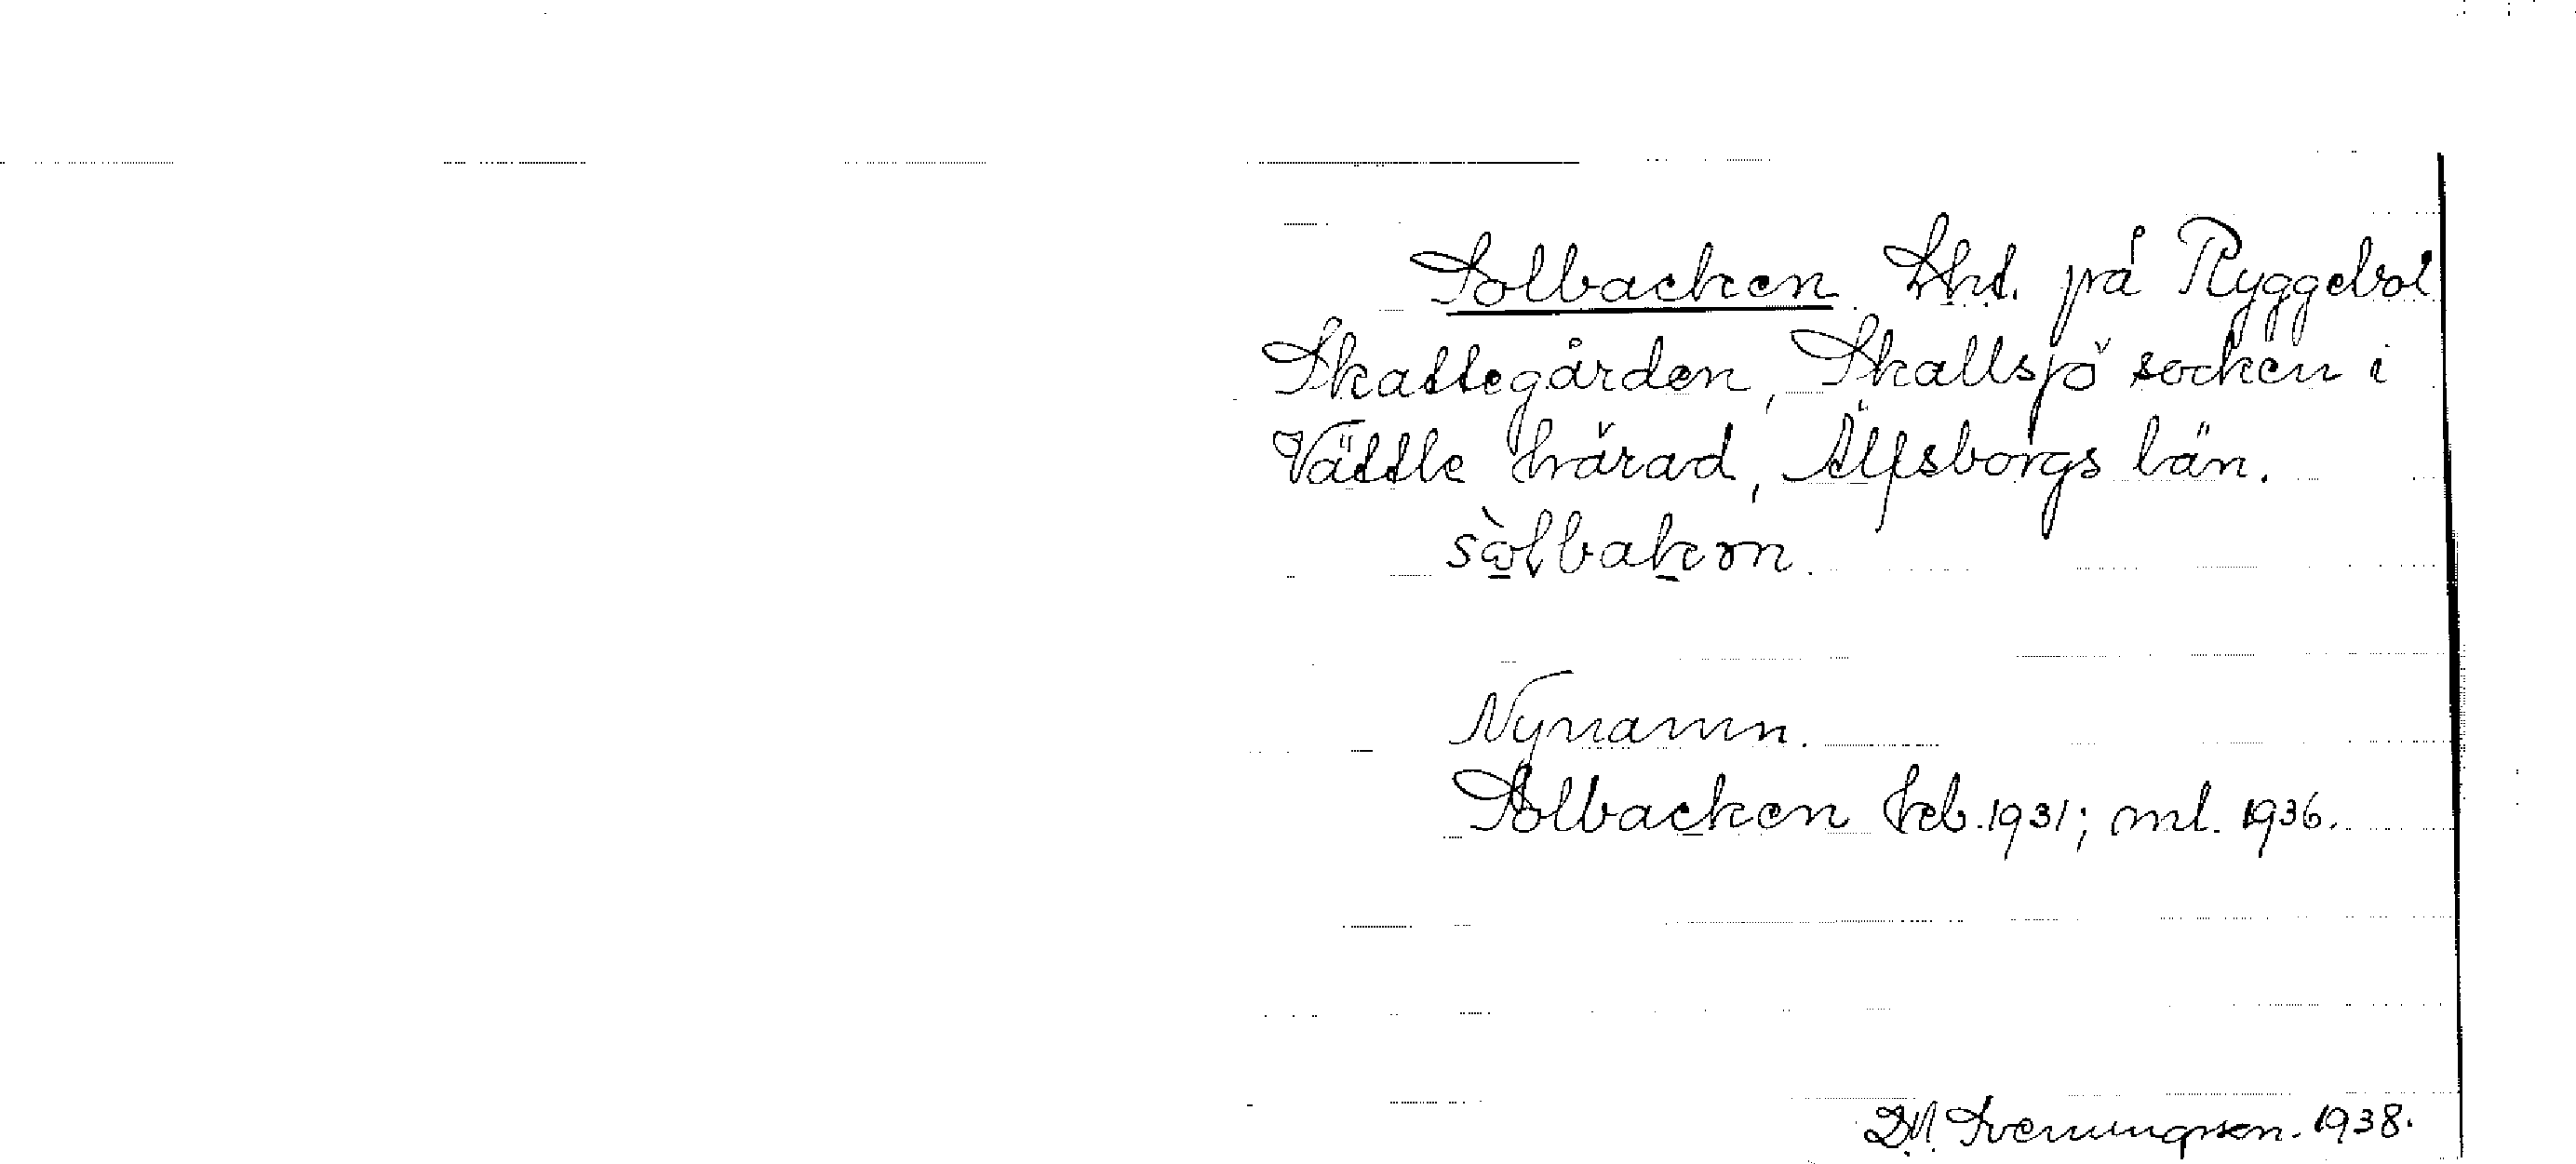 Solbacken. Lht. på Ryggebol
Skattegården, Skallsjö socken i
Vättle härad, Älfsborgs län.
sòlbakən.
Nynamn.
Solbacken Jreb. 1931; ml. 1936.
D.N. Svenungsson. 1938.